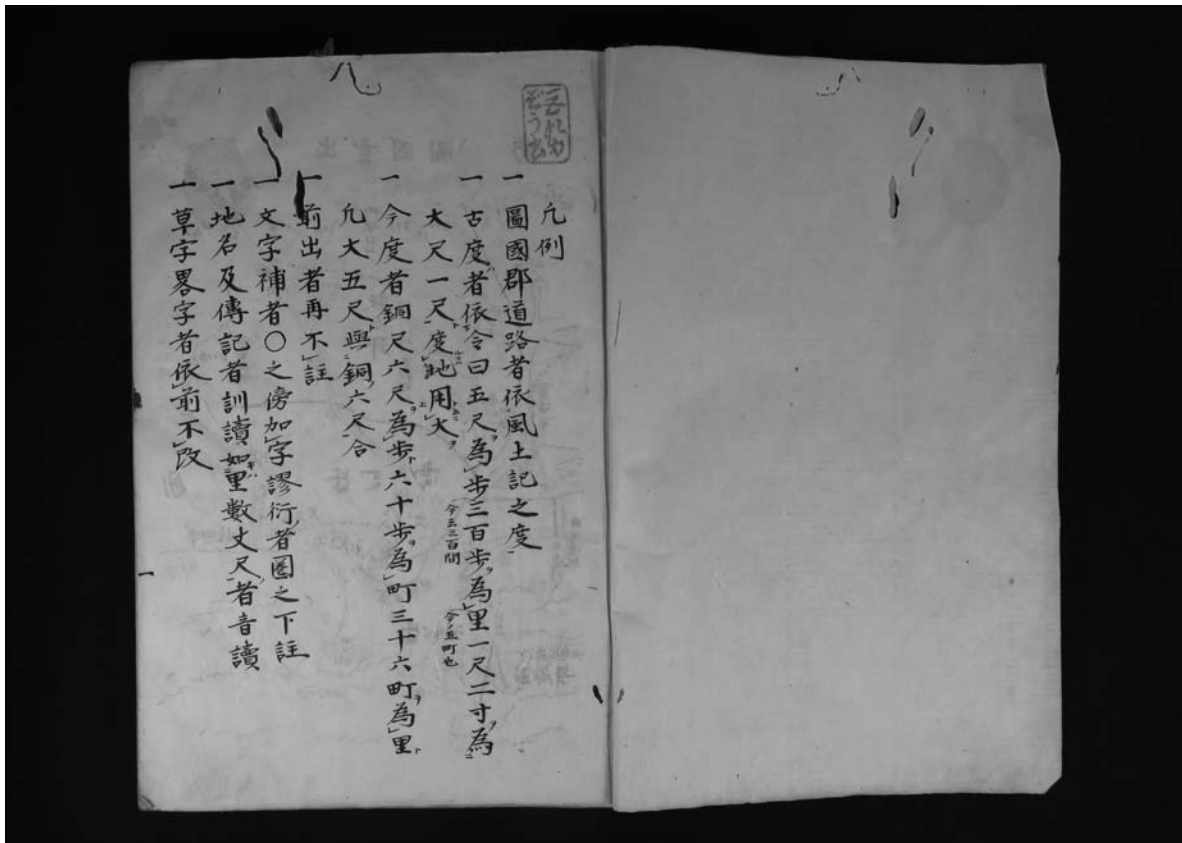 凡例
一圖國郡道路者依風土記之度
一古度者依令曰五尺為步三百步為里一尺二寸為
今云三百間
今五町也
大尺一尺度地用大
一今度者銅尺六尺為步六十步為町三十六町為里
凡大五尺與銅六尺合
一前出者再不註
一文字補者〇之傍加字謬衍者圏之下註
一地名及傳記者訓讀如里數丈尺者音讀
一草字畧字者依前不改